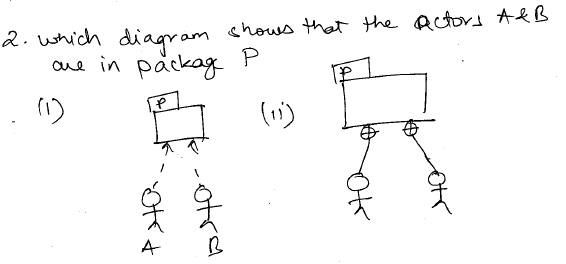 2. which diagram shows that the actors A & B
are in packag P
(i) P (ii) P
A B